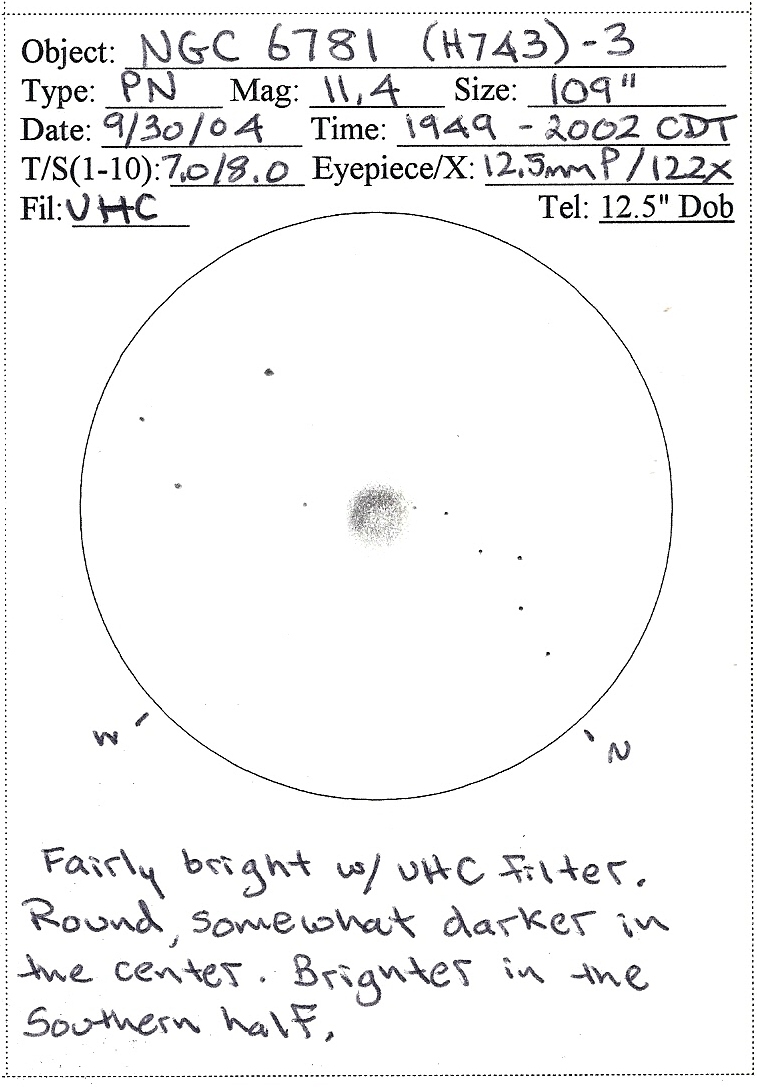 Object: NGC 6781 (H743)-3
Type: PN Mag: 11.4 Size: 109"
Date: 9/30/04 Time: 1949 - 2002 CDT
T/S(1-10): 7.0/8.0 Eyepiece/X: 12.5mm P/122X
Fil: UHC Tel: 12.5" Dob
W N
Fairly bright w/ UHC filter.
Round, somewhat darker in
the center. Brighter in the
Southern half.